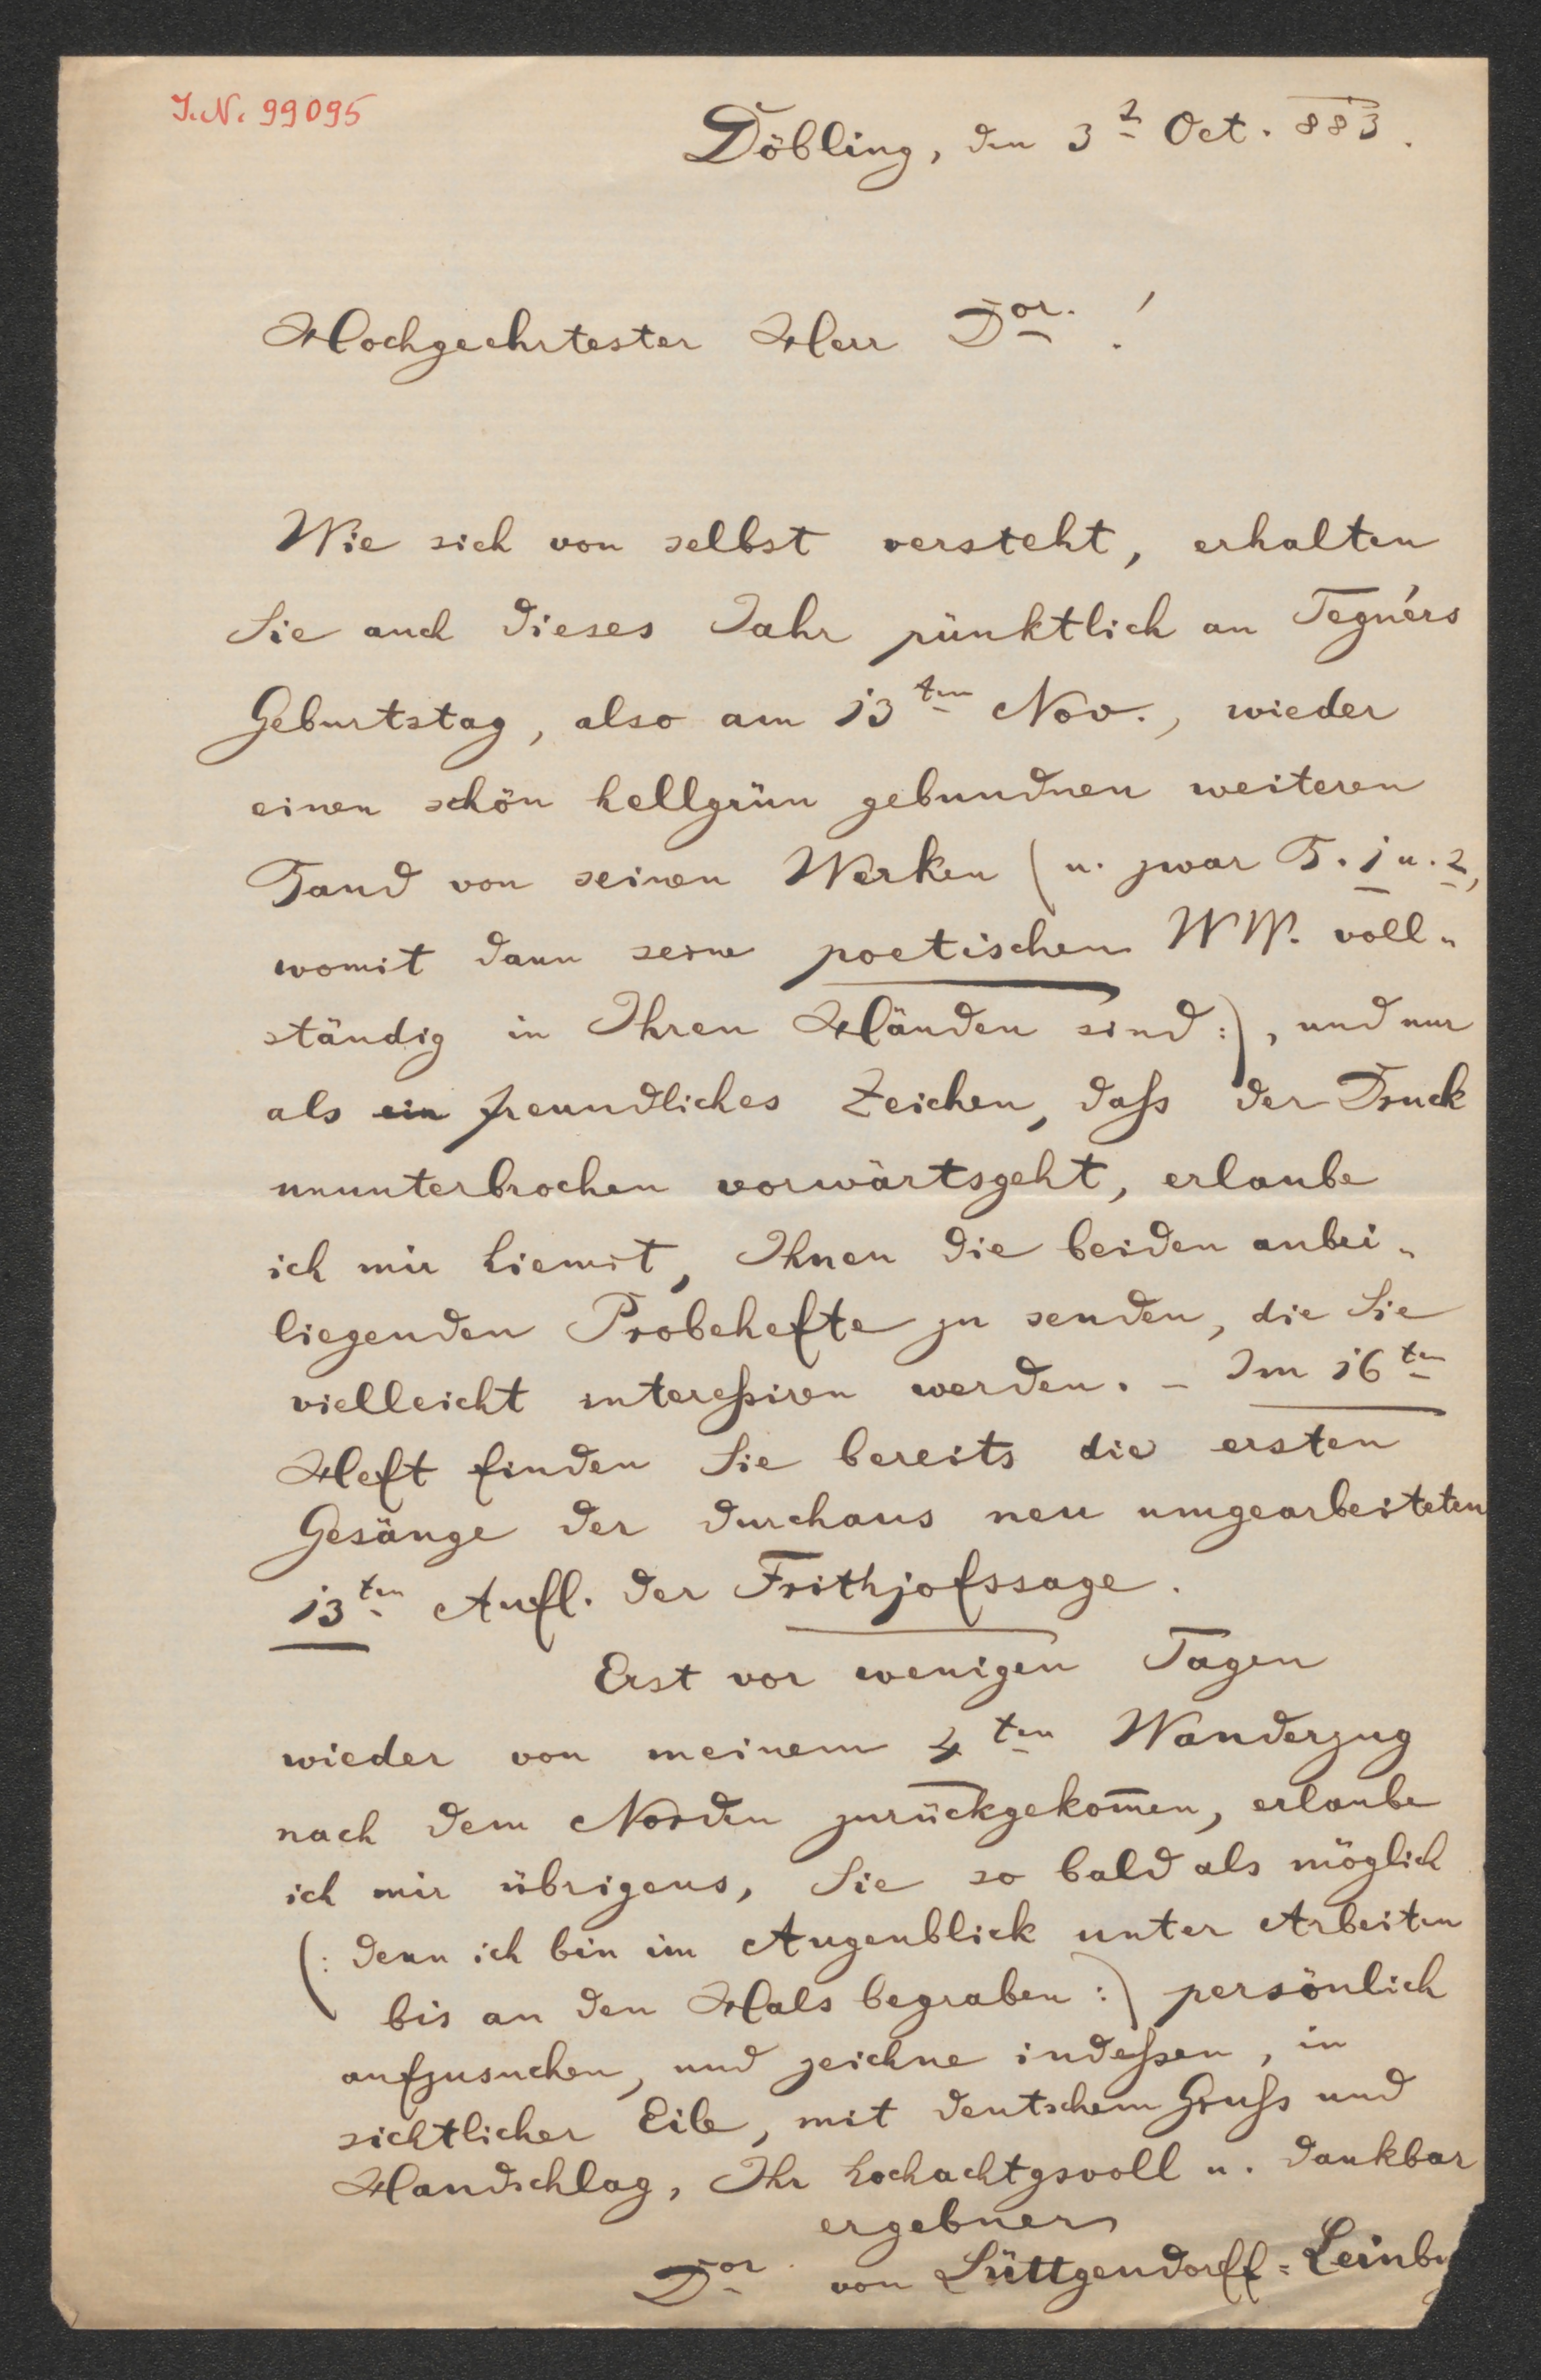 I.N. 99095
Döbling, den 3ⁿ Oct. 883.
Hochgeehrtester Herr Dor.!
Wie sich von selbst versteht, erhalten
Sie auch dieses Jahr pünktlich an Tegnérs
Geburtstag, also am 13ten Nov., wieder
einen schön hellgrün gebundnen weiteren
Band von seinen Werken (u. zwar B. 1 u. 2,
womit dann seine poetischen WW. voll„
ständig in Ihren Händen sind:), und nur
als ein freundliches Zeichen, daſs der Druck
ununterbrochen vorwärtsgeht, erlaube
ich mir hiemit, Ihnen die beiden anbei„
liegenden Probehefte zu senden, die Sie
vielleicht intereſsiren werden. – Im 16ten
Heft finden Sie bereits die ersten
Gesänge der durchaus neu umgearbeiteten
13ten Aufl. der Frithjofssage.
Erst vor wenigen Tagen
wieder von meinem 4ten Wanderzug
nach dem Norden zurückgekom̄en, erlaube
ich mir übrigens, Sie so bald als möglich
(: denn ich bin im Augenblick unter Arbeiten
bis an den Hals begraben :) persönlich
aufzusuchen, und zeichne indeſsen, in
sichtlicher Eile, mit deutschem Gruſs und
Handschlag, Ihr hochachtgsvoll u. dankbar
ergebner
Dor. von Lüttgendorff=Leinb